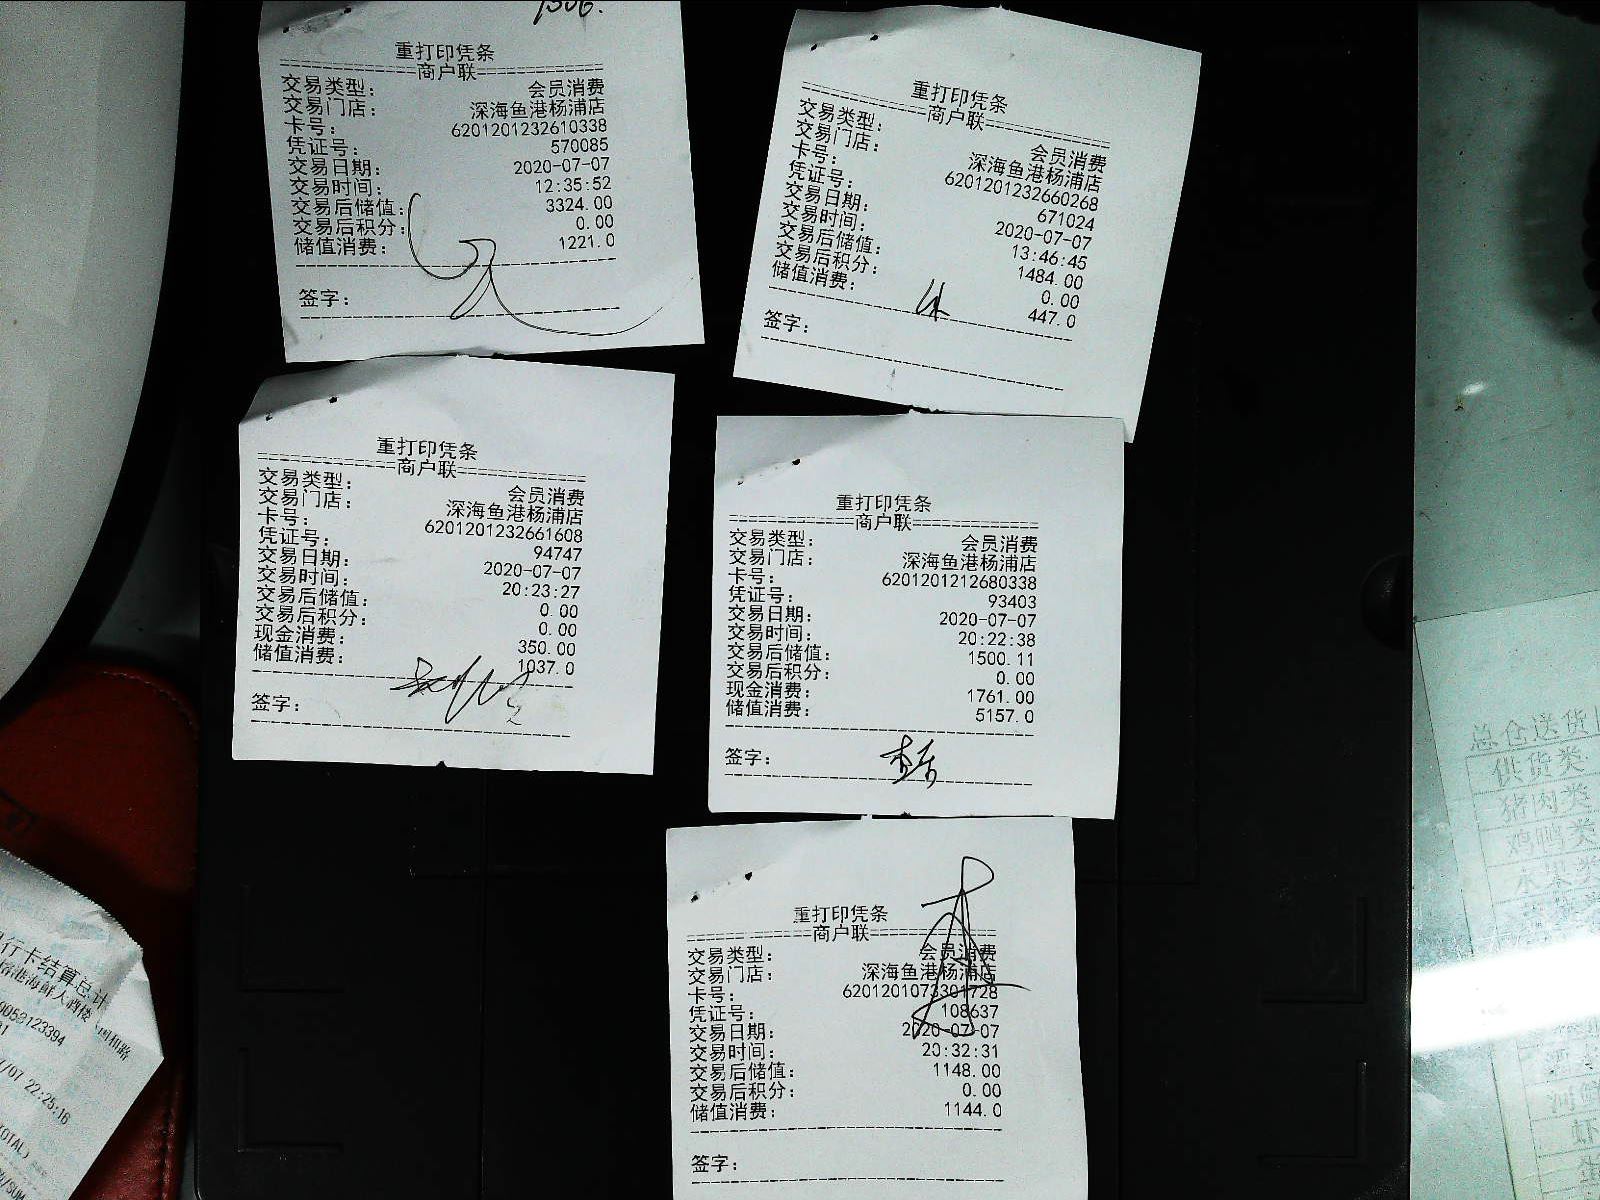 1306.
重打印凭条
商户联
交易类型： 会员消费
交易门店： 深海鱼港杨浦店
卡号： 6201201232610338
凭证号： 570085
交易日期： 2020-07-07
交易时间： 12:35:52
交易后储值： 3324.00
交易后积分： 0.00
储值消费： 1221.0
签字：
重打印凭条
商户联
交易类型： 会员消费
交易门店： 深海鱼港杨浦店
卡号： 6201201232660268
凭证号： 671024
交易日期： 2020-07-07
交易时间： 13:46:45
交易后储值： 1484.00
交易后积分： 0.00
储值消费： 447.0
签字：
重打印凭条
商户联
交易类型： 会员消费
交易门店： 深海鱼港杨浦店
卡号： 6201201232661608
凭证号： 94747
交易日期： 2020-07-07
交易时间： 20:23:27
交易后储值： 0.00
交易后积分： 0.00
现金消费： 350.00
储值消费： 1037.0
签字：
重打印凭条
商户联
交易类型： 会员消费
交易门店： 深海鱼港杨浦店
卡号： 6201201212680338
凭证号： 93403
交易日期： 2020-07-07
交易时间： 20:22:38
交易后储值： 1500.11
交易后积分： 0.00
现金消费： 1761.00
储值消费： 5157.0
签字：
重打印凭条
商户联
交易类型： 会员消费
交易门店： 深海鱼港杨浦店
卡号： 6201201073301728
凭证号： 108637
交易日期： 2020-07-07
交易时间： 20:32:31
交易后储值： 1148.00
交易后积分： 0.00
储值消费： 1144.0
签字：
行卡结算总计
港海鲜大酒楼
0053123394
/07 22:25:16
TOTAL)
总仓送货
供货类
猪肉类
鸡鸭类
水果类
虾